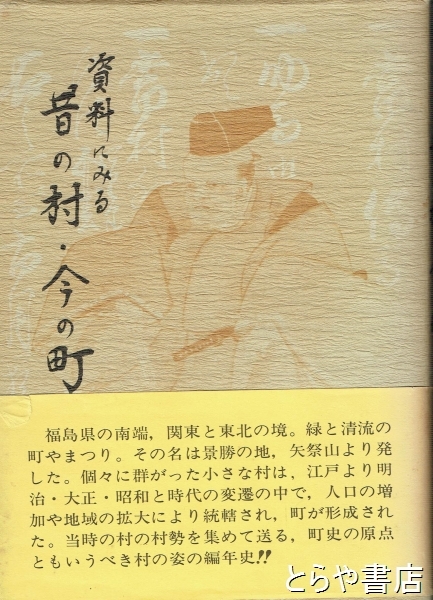 資料にみる
昔の村・今の町
福島県の南端，関東と東北の境。緑と清流の
町やまつり。その名は景勝の地，矢祭山より発
した。個々に群がった小さな村は、江戸より明
治・大正・昭和と時代の変遷の中で，人口の増
加や地域の拡大により統轄され，町が形成され
た。当時の村の村勢を集めて送る，町史の原点
ともいうべき村の姿の編年史!!
とらや書店